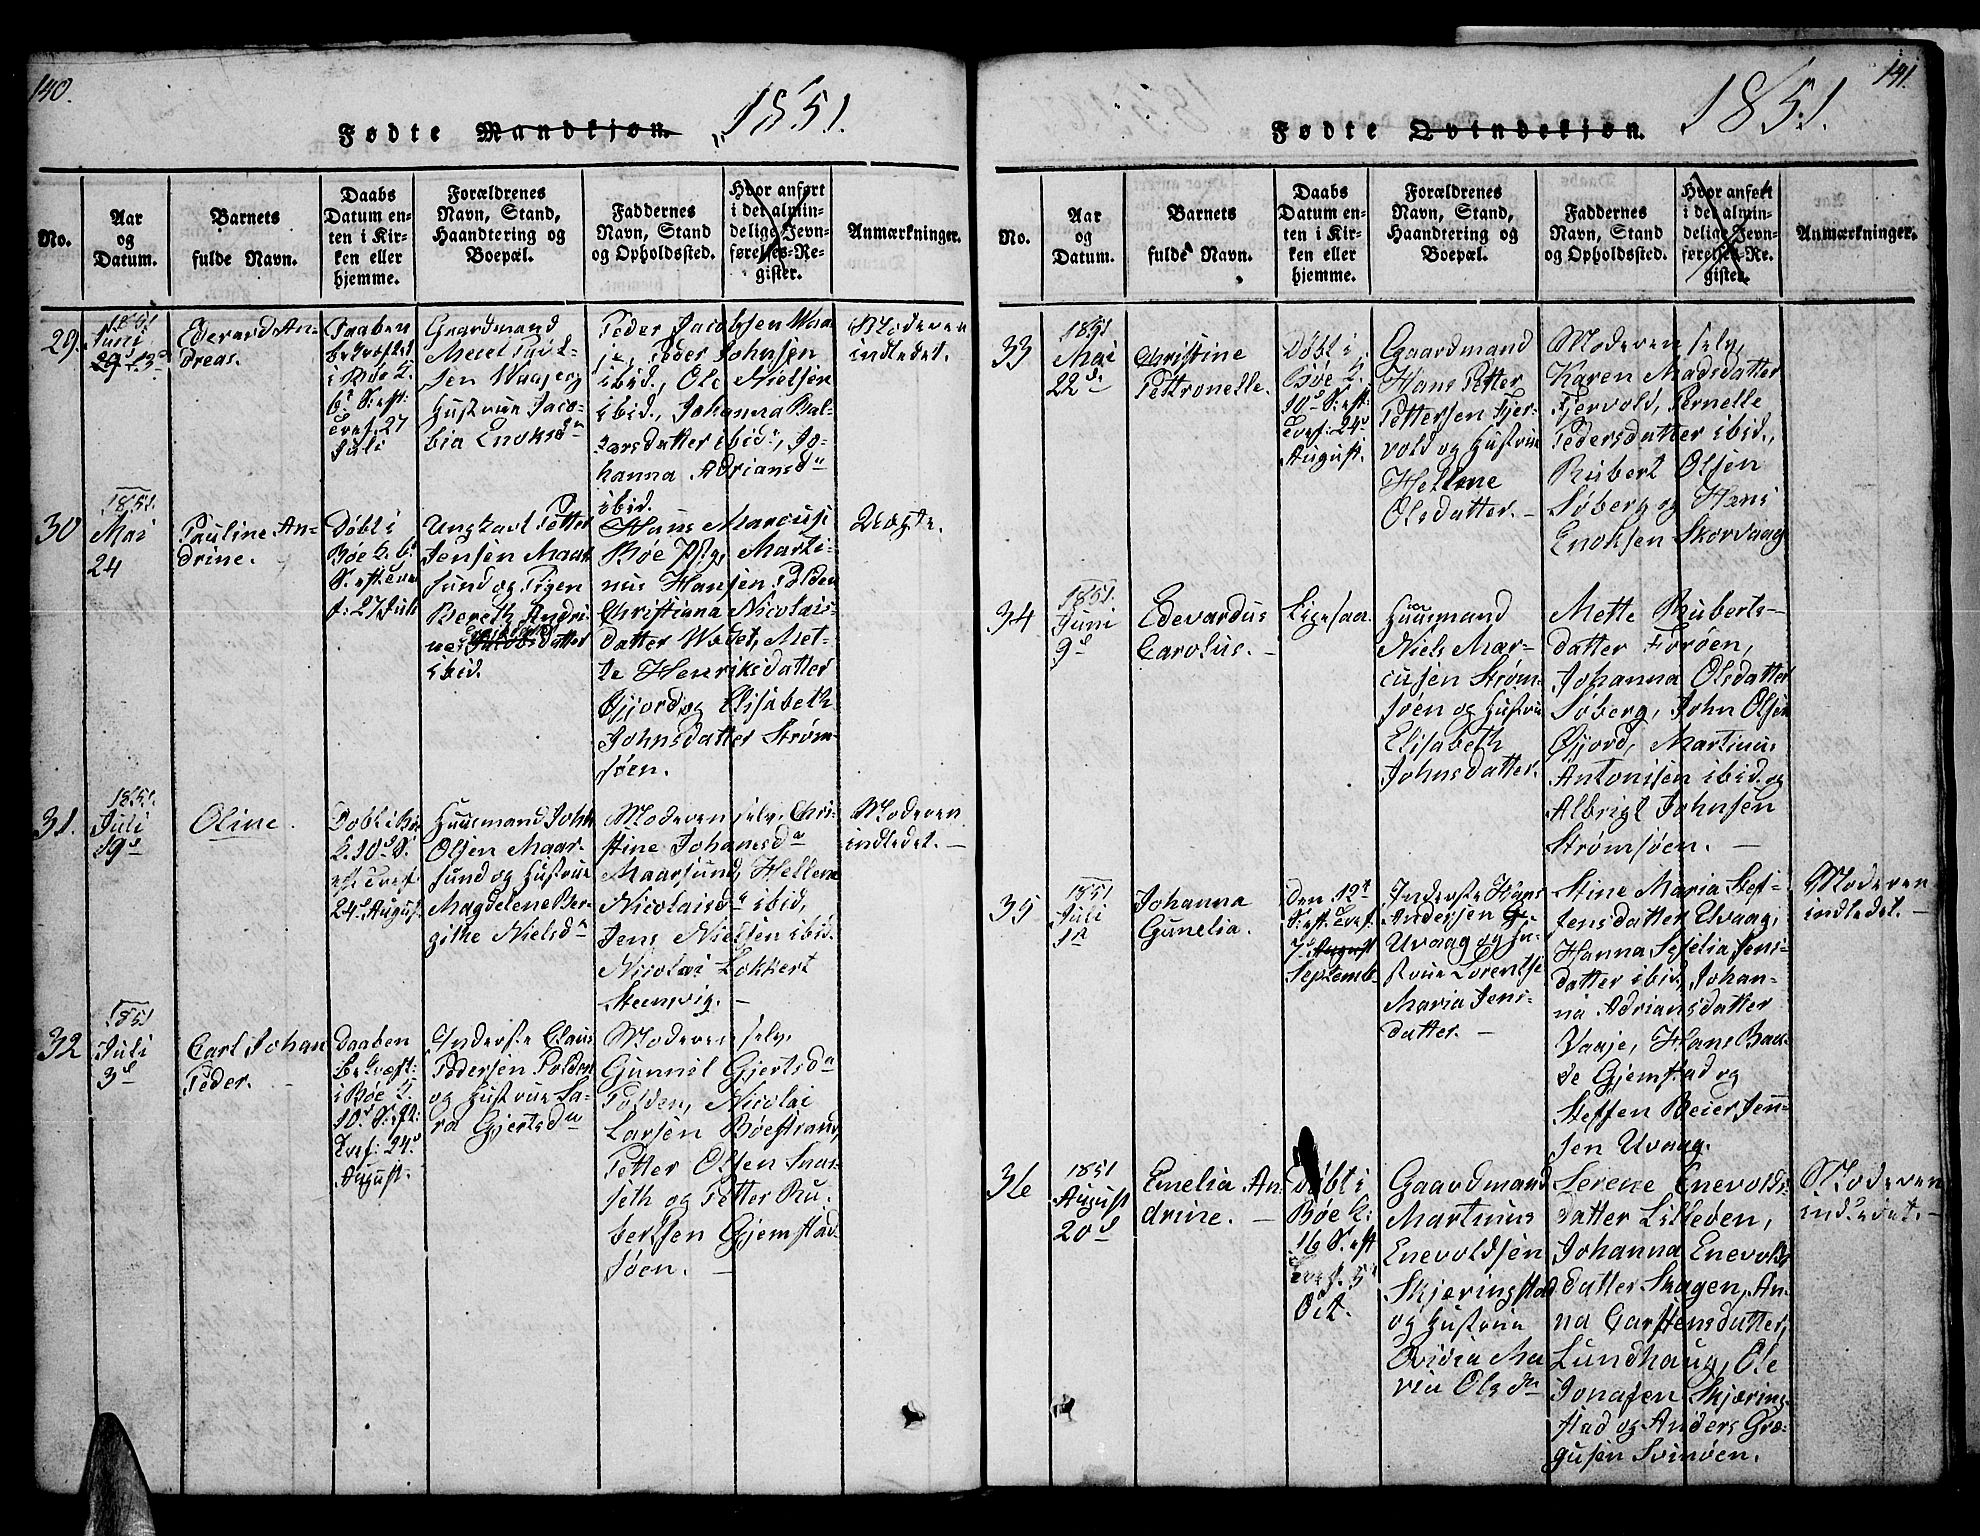 140.
Fødte Mandkjøn. 1851.
No.
Aar
og
Datum.
Barnets
fulde Navn.
Daabs
Datum en-
ten i Kir-
ken eller
hjemme.
Forældrenes
Navn, Stand,
Haandtering og
Boepæl.
Faddernes
Navn, Stand
og Opholdssted.
Hvor anført
i det almin-
delige Jevn-
førelses-Re-
gister.
Anmærkninger.
29.
1851
Juni
13
Edevard An-
dreas.
Daaben
bekræftet
i Bøe K.
6 S. eft:
Tref. 27
Juli
Gaardmand
sen Waaje og
Hustrue Jaco-
bia Enoksdn
Peder Jacobsen Waa-
je, Peder Johnsen
ibid., Ole Nielsen
ibid., Johanna Bal-
zersdatter ibid., Jo-
hanna Adriansdn
ibid.
Moderen
indledet.
30
1851.
Mai
24
Pauline An-
drine.
Døbt i
Bøe K. 6t
S. eft Tref
f: 27 Juli
Ungkarl Petter
Jensen Maar-
sund og Pigen
Bereth Andri-
ne datter
ibid.
Hans Marcusn
Bøe Pstg, Marti-
nus Hansen Polden
Christiana Nicolais-
datter Wadet, Met-
te Henriksdatter
Øjjord og Elisabeth
Johnsdatter Strøm-
søen.
Uægte.
31.
1851.
Juli
19d
Oline.
Døbt i Bøe
K. 10d S.
eft Tref
24d August
Huusmand John
Olsen Maar-
sund og Hustrue
Magdelene Ber-
githe Nielsdn
Moderen selv, Chri-
stine Johansda
Maarsund, Hellene
Nicolaisdn ibid,
Jens Nielsen ibid.
Nicolai Lokkert
Steensvig. –
Moderen
indledet. –
32
1851
Juli
3d
Carl Johan
Peder. –
Daaben
bekræft:
i Bøe K.
10d S. eft:
Tref: 24d
August.
Inderste Claus
Pedersen Polden
og Hustrue Sa-
ra Gjertsdn
Moderen selv,
Gunnil Gjertsda
Polden, Nicolai
Larsen Bøestrand,
Petter Olsen Snar-
seth og Petter Ru-
bertsen Gjemstad
søen. –
141.
Fødte Qvindekjøn. 1851.
No.
Aar
og
Datum.
Barnets
fulde Navn.
Daabs
Datum en-
ten i Kir-
ken eller
hjemme.
Forældrenes
Navn, Stand,
Haandtering og
Boepæl.
Faddernes
Navn, Stand
og Opholdssted.
Hvor anført
i det almin-
delige Jevn-
førelses-Re-
gister.
Anmærkninger.
33
1851
Mai
22d
Christine
Pettronelle.
Døbt i
Bøe K.
10d S. eft:
Tref: 24d
August.
Gaardmand
Hans Petter
Pettersen Fjer-
vold og Hustrue
Hellene
Olsdatter. –
Moderen selv,
Karen Madsdatter
Fjervold, Pernelle
Pedersdatter ibid.,
Rubert Olsen
Søberg og Hans
Enoksen Skorvaag
34
1851.
Juni
9d
Edevardus
Carolus. –
Ligesaa.
Huusmand
Niels Mar-
cusen Strøm-
søen og Hustrue
Elisabeth
Johnsdatter.
Mette Ruberts-
datter Forøen,
Johanna Olsdatter
Søberg, John Olsen
Øjjord, Martinus
Antonisen ibid. og
Albrigt Johnsen
Strømsøen. –
35
1851
Juli
1st
Johanna
Gunelia.
den 12t
S. eft. Tref.
7d August
Septemb.
Inderste Hans
Andersen
Uvaag og Hu-
strue Lorentse
Maria Jens-
datter. –
Stine Maria Stef-
fensdatter Uvaag,
Hanna Sesilia Jens-
datter ibid, Johan-
na Adriansdatter
Vaaje, Hans Bar-
de Gjemstad og
Steffen Beier Jen-
sen Uvaag.
Moderen
indledet. –
36
1851
August
20d
Emelia An-
drine. –
Døbt i
Bøe K:
16 S. eft
Tref. 5t
Oct.
Gaardmand
Martinus
Enevoldsen
Skjæringstad
og Hustrue
Ovidia Ma-
ria Olsdn
Serene Enevolds-
datter Lilleøen,
Johanna Enevolds
datter Skagen, An-
na Carstensdatter,
Lundhaug, Ole
Jonasen Skjæring-
stad og Anders Gre-
gusen Svinøen.
Moderen
indledet. –